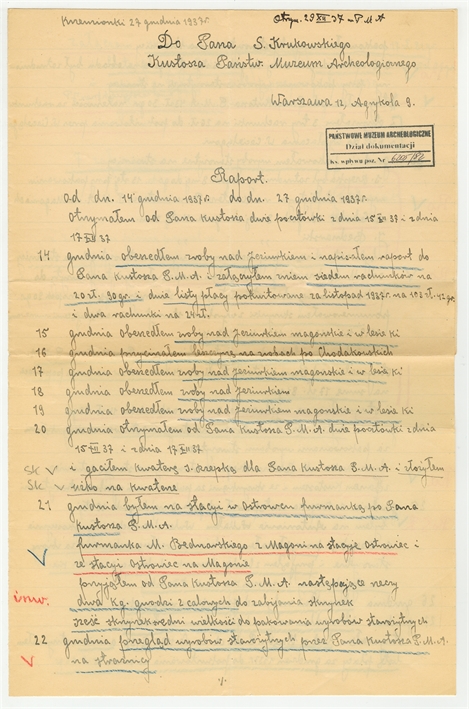 Krzemionki 27 grudnia 1937r.
Otrzym. 29 XII 37 - P M A
Do Pana S. Krukowskiego
Kustosza Państw. Muzeum Archeologicznego
Warszawa 12, Agrykola 9.
PAŃSTWOWE MUZEUM ARCHEOLOGICZNE
Dział dokumentacji
Ks. wpływu poz. Nr
Raport.
od dn. 14 grudnia 1937r. do dn. 27 grudnia 1937r.
Otrzymałem od Pana Kustosza dwa pocztówki z dnia 15 XII 37 i z dnia
17 XII 37
14 grudnia obeszedłem zroby nad Jeziurkiem i napisałem raport do
Pana Kustosza P.M.A. i załączyłem z niem siedem rachunków na
20 zł. 90 gr. i dwie listy płacy pokwitowane za listopad 1937r. na 102 zł. 42 gr.
i dwa rachunki na 24 zł.
15 grudnia obeszedłem zroby nad Jeziurkiem magońskie i w lesie ki
16 grudnia przycinałem leszczynę na zrobach po Chodakowskich
17 grudnia obeszedłem zroby nad Jeziurkiem magońskie i w lesie ki
18 grudnia obeszedłem zroby nad Jeziurkiem
19 grudnia obeszedłem zroby nad Jeziurkiem magońskie i w lesie ki
20 grudnia otrzymałem od Pana Kustosza P.M.A. dwie pocztówki z dnia
15 XII 37 i z dnia 17 XII 37
SK i gaciłem kwaterę J. Krzepka dla Pana Kustosza P.M.A. i złożyłem
SK łóżko na kwaterze
21 grudnia byłem na stacyi w Ostrowcu furmanką po Pana
Kustosza P.M.A.
furmanka M. Bednarskiego z Magoni na stację Ostrowiec i
ze stacji Ostrowiec na Magonie
przyjąłem od Pana Kustosza P.M.A. następujące rzeczy
inw. dwa kg. gwoździ 2 calowych do zabijania skrzynek
sześć skrzynek średni wielkości do pakowania wyrobów starożytnych
22 grudnia przegląd wyrobów starożytnych przez Pana Kustosza P.M.A.
na strażnicy